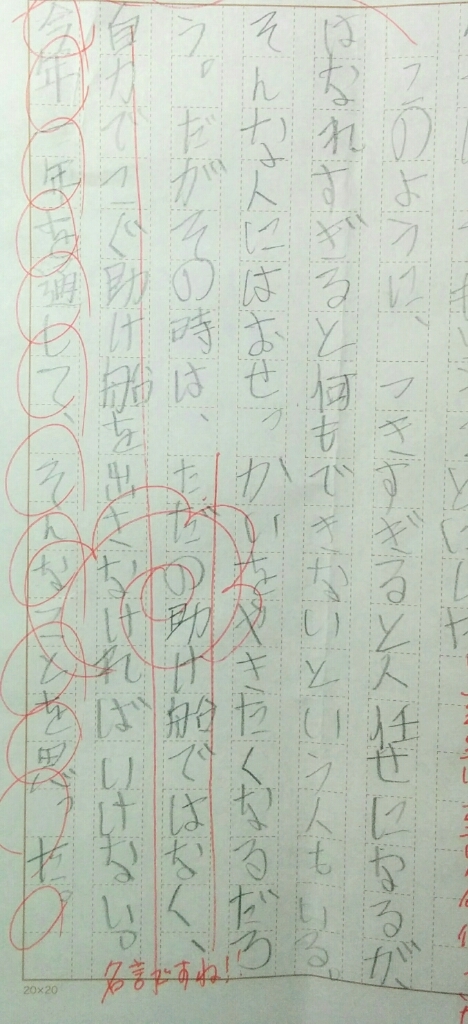 このように、つきすぎると人任せになるが、
はなれすぎると何もできないという人もいる。
そんな人にはおせっかいをやきたくなるだろ
う。だがその時は、ただの助け船ではなく、
自力でこぐ助け船を出さなければいけない。
今年一年を通して、そんなことを思った。
名言ですね!
20×20